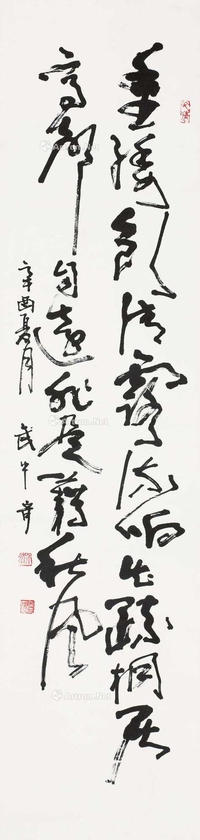 垂緌饮清露流响出疏桐居
高声自远非是藉秋风
辛酉夏月 武中奇